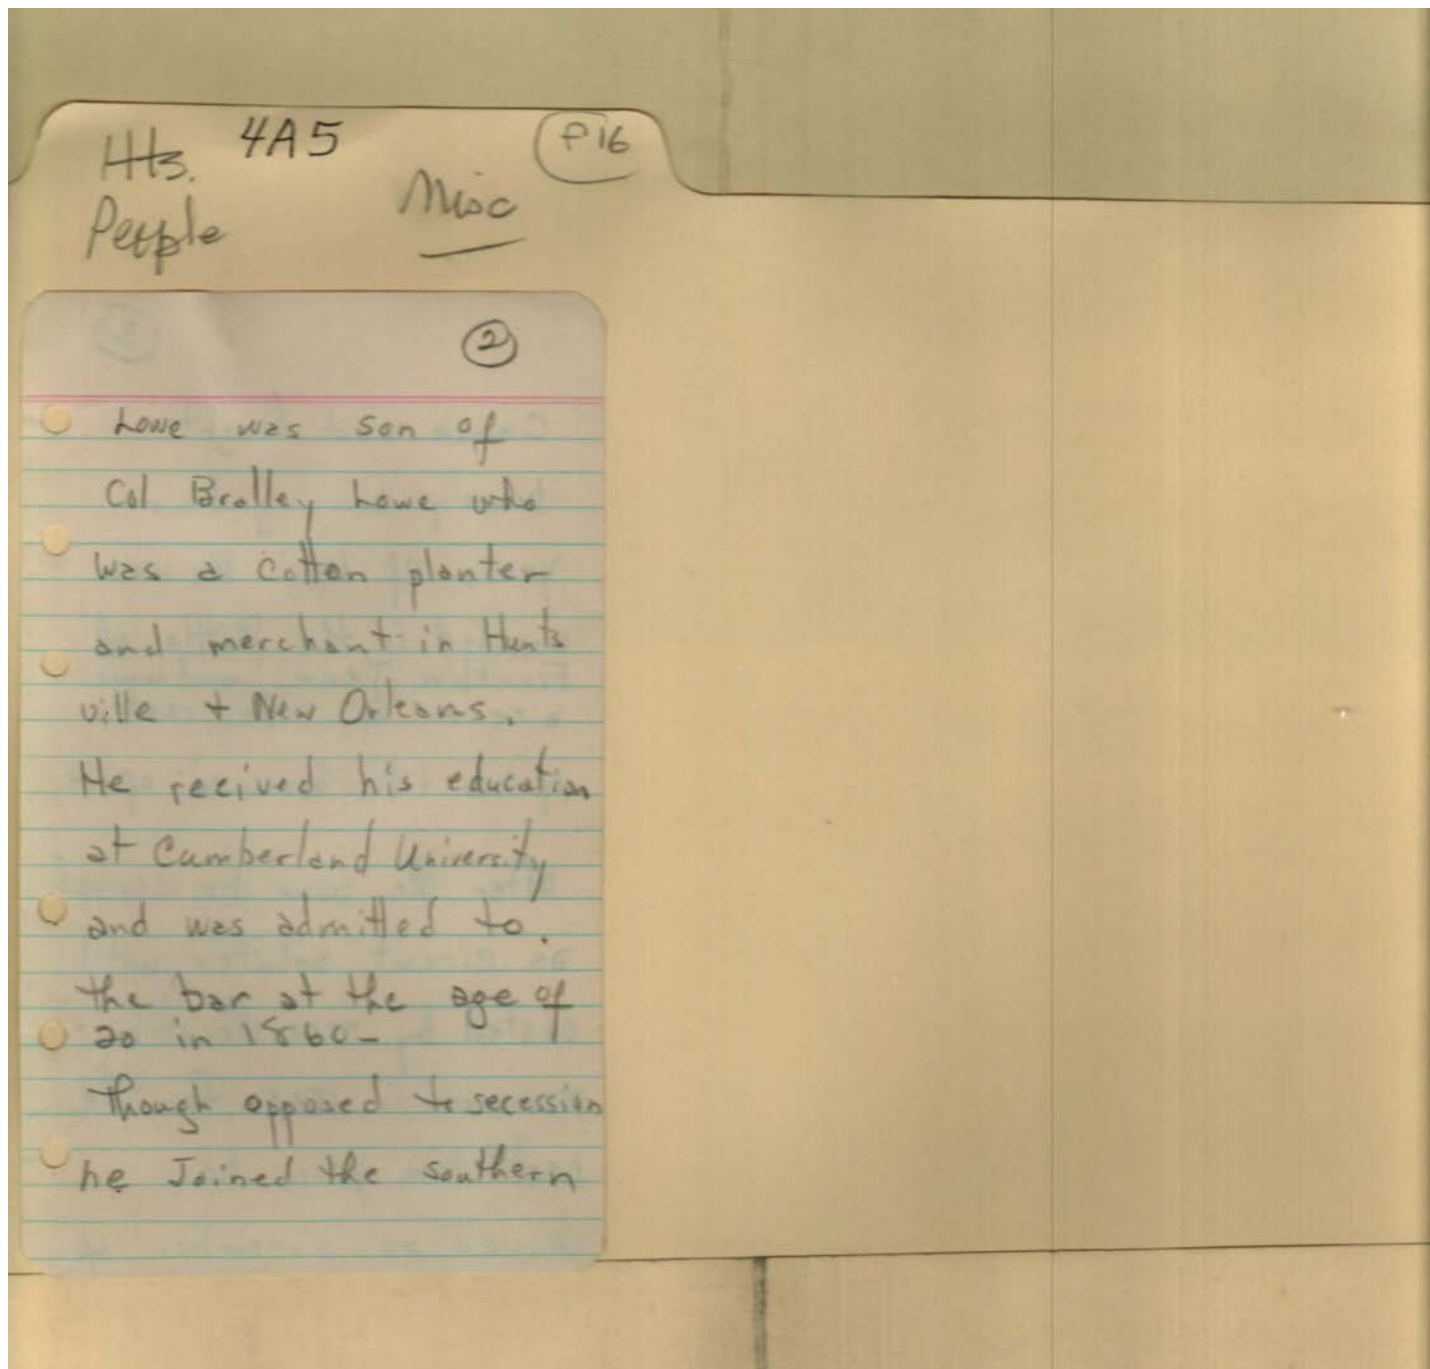 4A5
P16
Hts.
People
Misc
2
Lowe was son of
Col Bralley Lowe who
was a cotton planter
and merchant in Hunts
ville + New Orleans.
He recived his education
at Cumberland University
and was admitted to.
the bar at the age of
20 in 1860-
Though opposed to secession
he Joined the southern